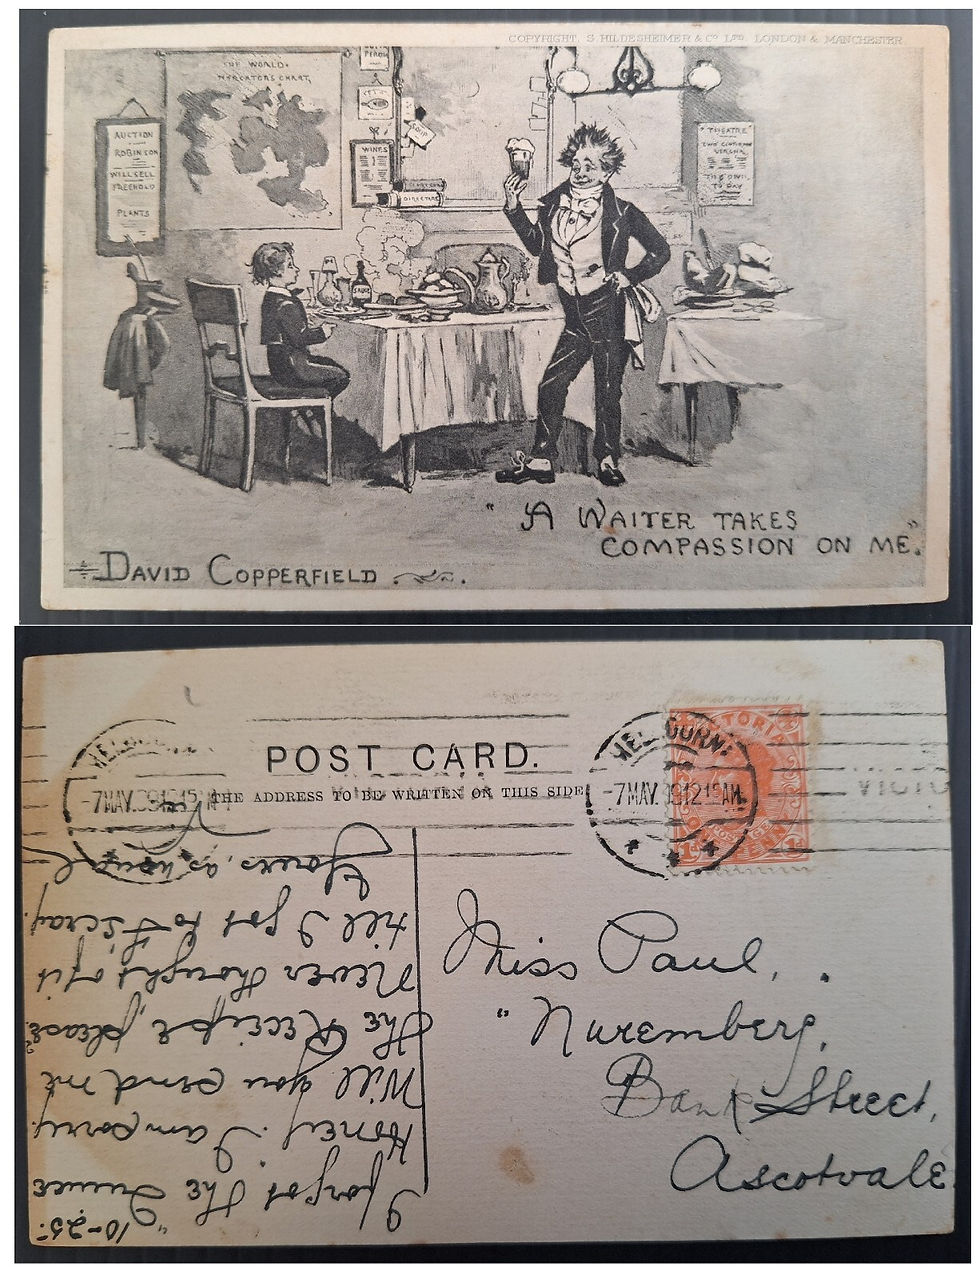 COPYRIGHT. S. HILDESHEIMER & Co LTD. LONDON & MANCHESTER
THE WORLD.
MERCATORS CHART,
AUCTION
ROBINSON
WILL SELL
FREEHOLD
PLANTS
SOUP
WINES
DIRECTORY
SAUCE
THEATRE
TO DAY
"A WAITER TAKES
COMPASSION ON ME."
DAVID COPPERFIELD
POST CARD.
THE ADDRESS TO BE WRITTEN ON THIS SIDE
MELBOURNE
-7MAY.
MELBOURNE
-7MAY. 12 15AM.
VICTORIA
POSTAGE
VICTO
Miss Paul,
"Nuremberg,
Bank Street,
Ascotvale
10-25.
I forgot the "Quince
Honey". I am sorry.
Will you send me
the Receipe, please?
Never thought of it
till I got to F'scray.
Yours, as usual